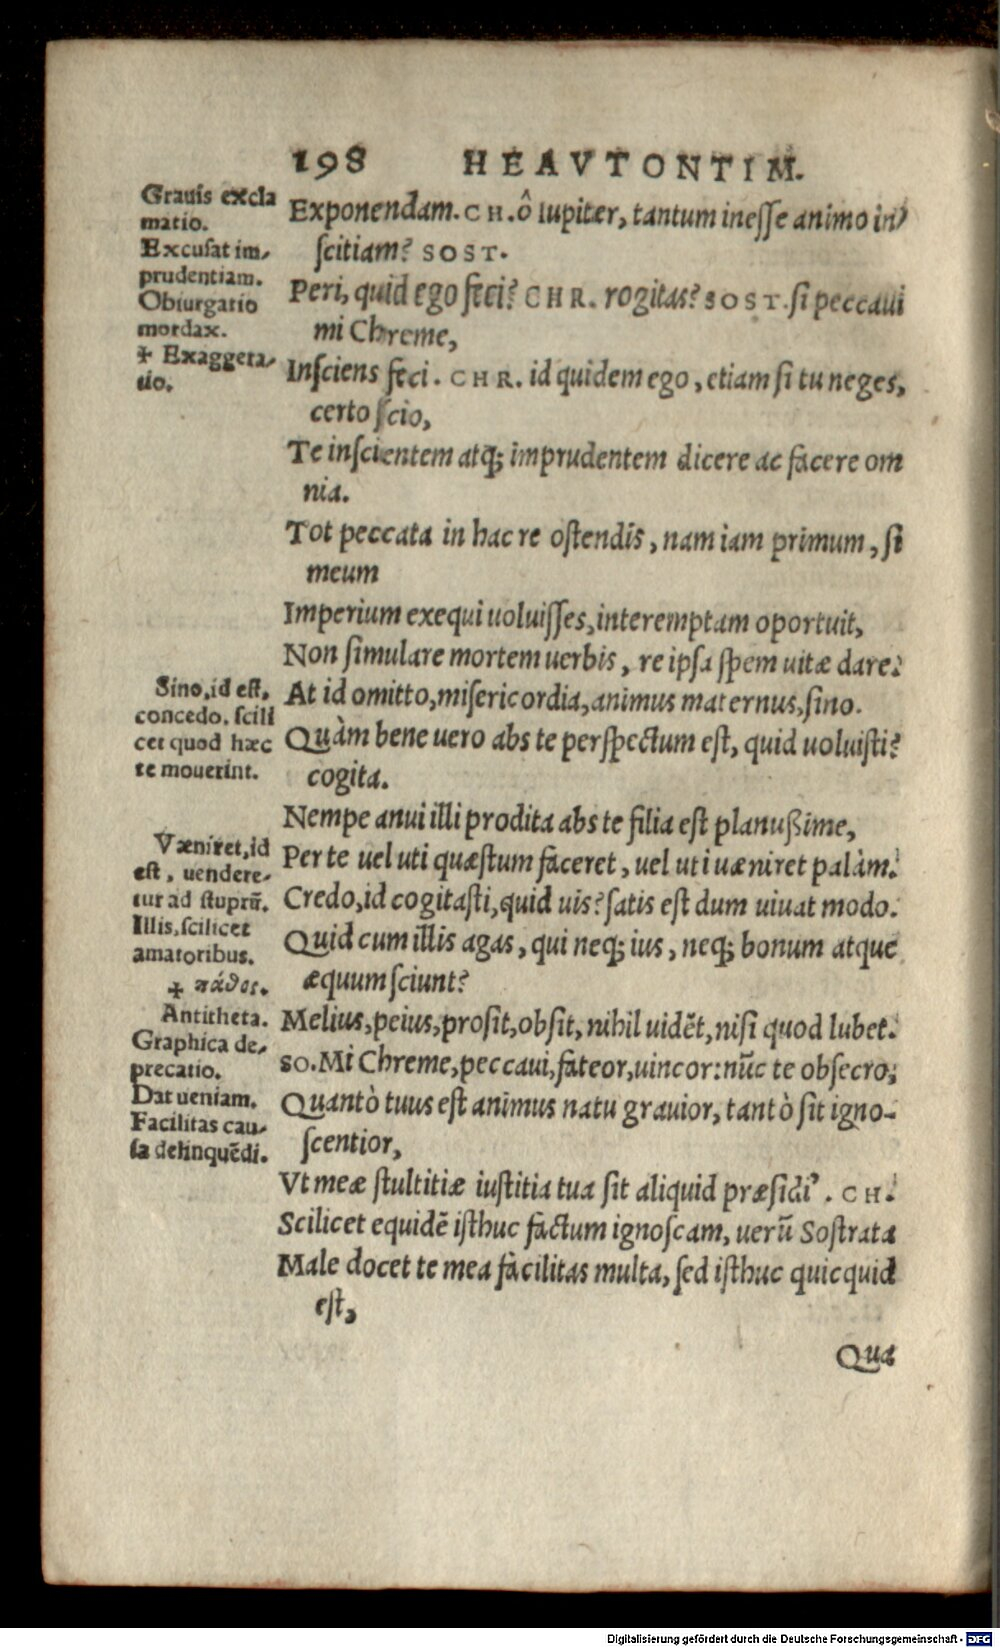 198 HEAVTONTIM.
Grauis excla
matio.
Excusat im-
prudentiam.
Obiurgatio
mordax.
+ Exaggera-
tio.
Exponendam. CH. ô Iupiter, tantum inesse animo in-
scitiam? SOST.
Peri, quid ego feci? CHR. rogitas? SOST. si peccaui
mi Chreme,
Insciens feci. CHR. id quidem ego, etiam si tu neges,
certo scio,
Te inscientem atq; imprudentem dicere ac facere om
nia.
Tot peccata in hac re ostendis, nam iam primum, si
meum
Imperium exequi uoluisses, interemptam oportuit,
Non simulare mortem uerbis, re ipsa spem uitæ dare.
Sino, id est,
concedo. scili
cet quod hæc
te mouerint.
At id omitto, misericordia, animus maternus, sino.
Quàm bene uero abs te perspectum est, quid uoluisti?
cogita.
Nempe anui illi prodita abs te filia est planußime,
Væniret, id
est, uendere-
tur ad stuprũ.
Illis, scilicet
amatoribus.
+ πάθος.
Per te uel uti quæstum faceret, uel uti uæniret palàm.
Credo, id cogitasti, quid uis? satis est dum uiuat modo.
Quid cum illis agas, qui neq; ius, neq; bonum atque
æquum sciunt?
Antitheta.
Graphica de-
precatio.
Dat ueniam.
Facilitas cau-
sa delinquẽdi.
Melius, peius, prosit, obsit, nihil uidẽt, nisi quod lubet.
SO. Mi Chreme, peccaui, fateor, uincor: nũc te obsecro,
Quantò tuus est animus natu grauior, tantò sit igno-
scentior,
Vt meæ stultitiæ iustitia tua sit aliquid præsidi'. CH.
Scilicet equidẽ isthuc factum ignoscam, uerũ Sostrata
Male docet te mea facilitas multa, sed isthuc quicquid
est,
Qua
Digitalisierung gefördert durch die Deutsche Forschungsgemeinschaft - DFG